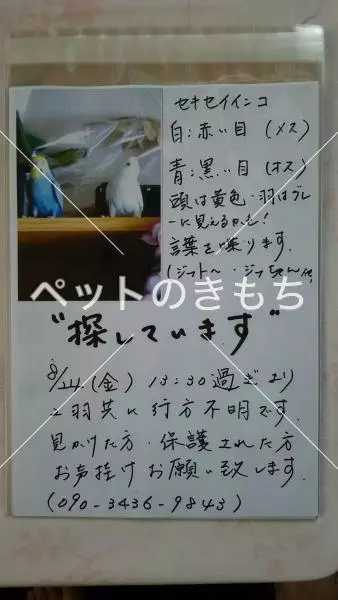 セキセイインコ
白:赤い目 (メス)
青:黒い目 (オス)
頭は黄色・羽はブルー
に見えるかも!
言葉を喋ります。
ペットのきもち
"探しています"
8/24(金) 13:30過ぎより
二羽共に行方不明です。
見かけた方・保護された方
お声掛けお願い致します。
(090-3436-9843)